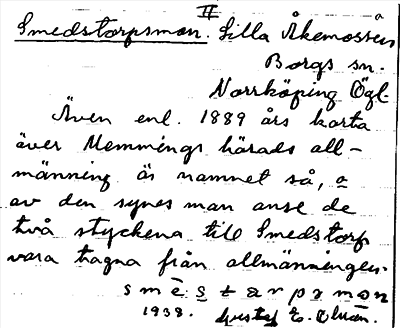 II
Smedstorpsmon. Lilla Åkemossen
Borgs sn.
Norrköping Ögl.
Även enl. 1889 års karta
över Memmings härads all-
männing är namnet så, o
av den synes man anse de
två styckena till Smedstorp
vara tagna från allmänningen.
smɛ̄starpamon
1938. Gustaf E. Ehsén.